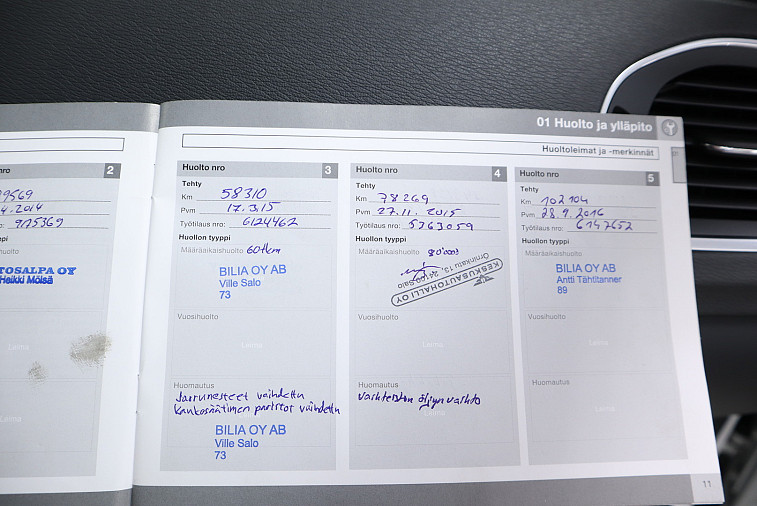 01 Huolto ja ylläpito
Huoltoleimat ja -merkinnät
nro 2
9569
.4.2014
9125369
TOSALPA OY
Heikki Möisä
Huolto nro 3
Tehty
Km 58310
Pvm 17.3.15
Työtilaus nro: 6124462
Huollon tyyppi
Määräaikaishuolto 60tkm
BILIA OY AB
Ville Salo
73
Vuosihuolto
Leima
Huomautus
Jarrunesteet vaihdettu
Kaukosäätimen paristot vaihdettu
BILIA OY AB
Ville Salo
73
Huolto nro 4
Tehty
Km 78269
Pvm 27.11.2015
Työtilaus nro: 5763059
Huollon tyyppi
Määräaikaishuolto 80'000
KESKUSAUTOHALLI OY
Örninkatu 13, 24100 Salo
Vuosihuolto
Leima
Huomautus
Vaihteiston öljyn vaihto
Leima
Huolto nro 5
Tehty
Km 102104
Pvm 28.9.2016
Työtilaus nro: 6147652
Huollon tyyppi
Määräaikaishuolto
BILIA OY AB
Antti Tähtitanner
89
Vuosihuolto
Leima
Huomautus
Leima
11